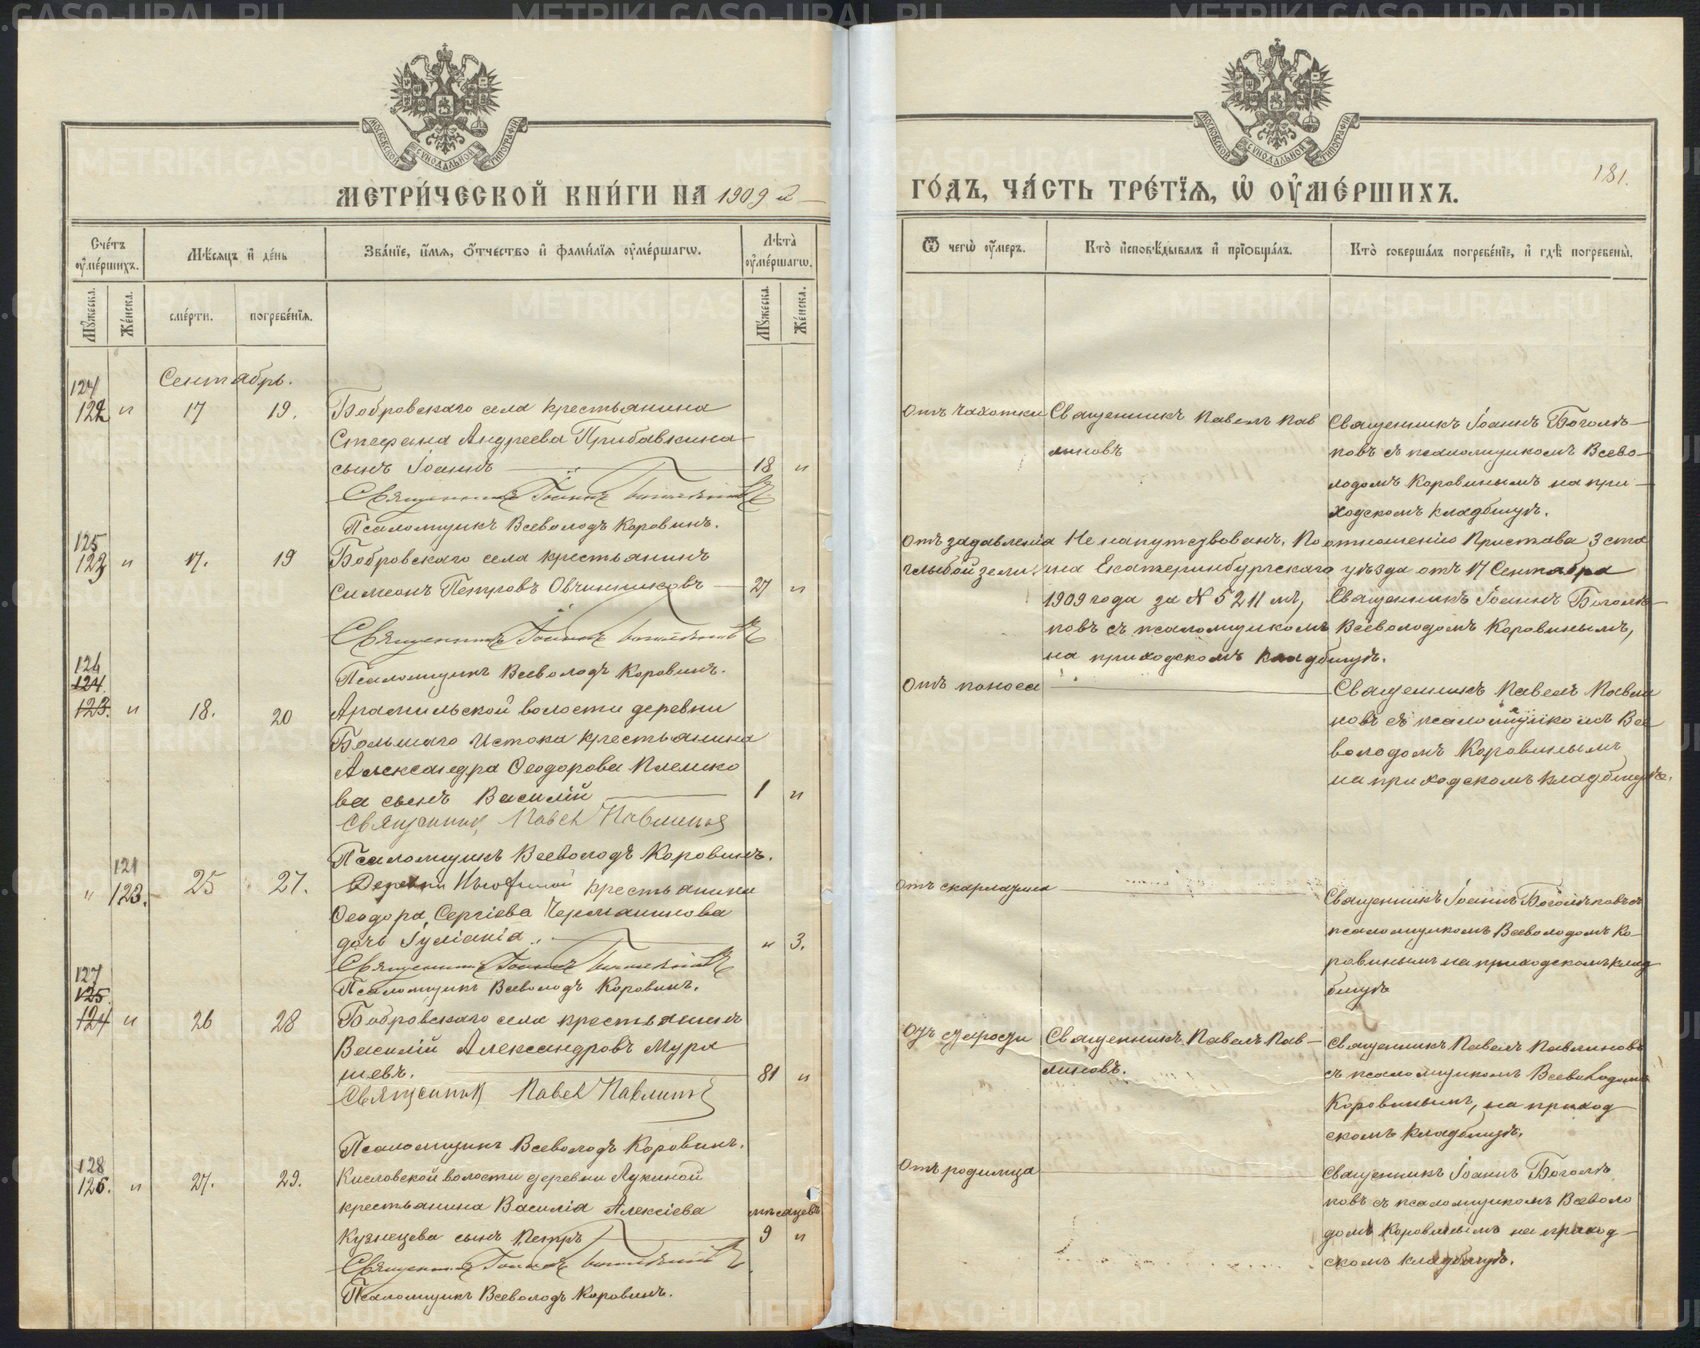 МЕТРИ́ЧЕСКОЙ КНИ́ГИ НА 1909 й
ГО́ДЪ, ЧА́СТЬ ТРЕ́ТЇѦ, Ѡ҆ ОУ҆МЕ́РШИХЪ.
181.
Сче́тъ оу҆ме́ршихъ.
Мѣ́сѧцъ и҆ де́нь
Зва́нїе, и҆́мѧ, ѻ҆́тчество и҆ фами́лїѧ оу҆ме́ршагѡ.
Лѣ́та оу҆ме́ршагѡ.
Ѿ чегѡ̀ оу҆́меръ.
Кто̀ и҆сповѣ́дывалъ и҆ прїѡбща́лъ.
Кто̀ соверша́лъ погребе́нїе, и҆ гдѣ̀ погребены̀.
Мꙋ́жеска.
Же́нска.
сме́рти.
погребе́нїѧ.
Мꙋ́жеска.
Же́нска.
Сентябрь.
124
122 " 17 19.
Бобровскаго села крестьянина
Стефана Андреева Прибавкина
сынъ Іоаннъ 18 "
Священникъ Іоаннъ Боголѣповъ
Псаломщикъ Всеволодъ Коровинъ.
Отъ чахотки
Священникъ Павелъ Пав
линовъ
Священникъ Іоаннъ Боголѣ-
повъ съ псаломщикомъ Всево-
лодомъ Коровинымъ на при-
ходскомъ кладбищѣ.
125
123 " 17. 19
Бобровскаго села крестьянинъ
Симеонъ Петровъ Овчинниковъ 27 "
Священникъ Іоаннъ Боголѣповъ
Псаломщикъ Всеволодъ Коровинъ.
Отъ задавленія
глыбой земли
Не напутствованъ. По отношенію Пристава 3 ста
на Екатеринбургскаго уѣзда отъ 17 Сентября
1909 года за № 5211 мъ, Священникъ Іоаннъ Боголѣ-
повъ съ псаломщикомъ Всеволодомъ Коровинымъ,
на приходскомъ кладбищѣ.
126
124.
123. " 18. 20
Арамильской волости деревни
Большаго Истока крестьянина
Александра Ѳеодорова Плешко
ва сынъ Василій 1 "
Священникъ Павелъ Павлиновъ
Псаломщикъ Всеволодъ Коровинъ.
Отъ поноса
Священникъ Павелъ Павли
новъ съ псаломщикомъ Все
володомъ Коровинымъ
на приходскомъ кладбищѣ.
121
" 123. 25 27.
Деревни крестьянина
Ѳеодора Сергіева
дочь Іуліанія " 3.
Священникъ Іоаннъ Боголѣповъ
Псаломщикъ Всеволодъ Коровинъ.
Отъ скарлатины
Священникъ Іоаннъ Боголѣповъ съ
псаломщикомъ Всеволодомъ Ко-
ровинымъ на приходскомъ клад
бищѣ
127
125.
124 " 26 28
Бобровскаго села крестьянинъ
Василій Александровъ Мура
шевъ. 81 "
Священникъ Павелъ Павлиновъ
Псаломщикъ Всеволодъ Коровинъ.
Отъ старости
Священникъ Павелъ Пав-
линовъ.
Священникъ Павелъ Павлиновъ
съ псаломщикомъ Всеволодомъ
Коровинымъ, на приход
скомъ кладбищѣ.
128
126. " 27. 29.
Кисловской волости деревни Лукиной
крестьянина Василія Алексіева
Кузнецова сынъ Петръ мѣсяцевъ 9 "
Священникъ Іоаннъ Боголѣповъ
Псаломщикъ Всеволодъ Коровинъ.
Отъ родимца
Священникъ Іоаннъ Боголѣ
повъ съ псаломщикомъ Всеволо
домъ Коровинымъ на приход-
скомъ кладбищѣ.